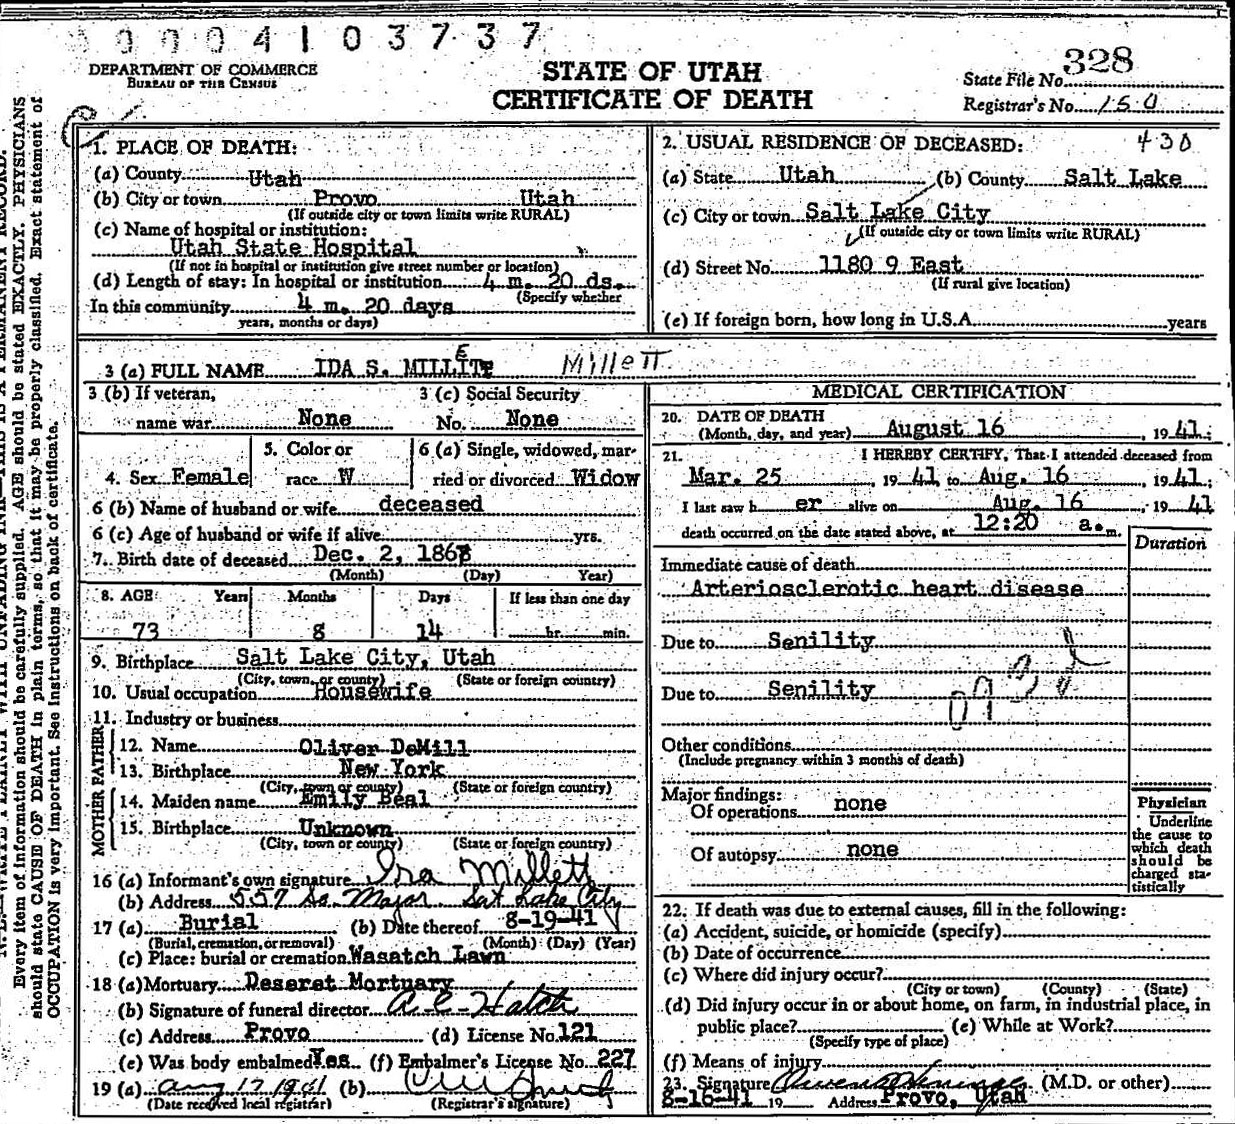 0004103737
DEPARTMENT OF COMMERCE
BUREAU OF THE CENSUS
STATE OF UTAH
CERTIFICATE OF DEATH
State File No. 328
Registrar's No. 150
1. PLACE OF DEATH:
(a) County Utah
(b) City or town Provo Utah
(If outside city or town limits write RURAL)
(c) Name of hospital or institution:
Utah State Hospital
(If not in hospital or institution give street number or location)
(d) Length of stay: In hospital or institution 4 m. 20 ds.
(Specify whether
In this community 4 m. 20 days
years, months or days)
2. USUAL RESIDENCE OF DECEASED: 430
(a) State Utah (b) County Salt Lake
(c) City or town Salt Lake City
(If outside city or town limits write RURAL)
(d) Street No. 1180 9 East
(If rural give location)
(e) If foreign born, how long in U.S.A. years
3 (a) FULL NAME IDA S. MILLETT Millett
3 (b) If veteran,
name war None
3 (c) Social Security
No. None
4. Sex Female
5. Color or
race W
6 (a) Single, widowed, mar-
ried or divorced Widow
6 (b) Name of husband or wife deceased
6 (c) Age of husband or wife if alive yrs.
7. Birth date of deceased Dec. 2, 186
(Month) (Day) Year)
8. AGE Years Months Days If less than one day
73 8 14 hr. min.
9. Birthplace Salt Lake City, Utah
(City, town, or county) (State or foreign country)
10. Usual occupation Housewife
11. Industry or business
FATHER
12. Name Oliver DeMill
13. Birthplace New York
(City, town or county) (State or foreign country)
MOTHER
14. Maiden name Emily Beal
15. Birthplace Unknown
(City, town or county) (State or foreign country)
16 (a) Informant's own signature Ira Millett
(b) Address 557 So. Major Salt Lake City
17 (a) Burial (b) Date thereof 8-19-41
(Burial, cremation, or removal) (Month) (Day) (Year)
(c) Place: burial or cremation Wasatch Lawn
18 (a) Mortuary Deseret Mortuary
(b) Signature of funeral director A. E. Hatch
(c) Address Provo (d) License No. 121
(e) Was body embalmed Yes (f) Embalmer's License No. 227
19 (a) Aug 17 1941 (b)
(Date received local registrar) (Registrar's signature)
MEDICAL CERTIFICATION
20. DATE OF DEATH
(Month, day, and year) August 16, 1941;
21. I HEREBY CERTIFY, That I attended deceased from
Mar. 25, 1941 to Aug. 16, 1941;
I last saw h er alive on Aug. 16, 1941
death occurred on the date stated above, at 12:20 a. m.
Duration
Immediate cause of death
Arteriosclerotic heart disease
Due to Senility
Due to Senility
Other conditions
(Include pregnancy within 3 months of death)
Major findings:
Of operations none
Of autopsy none
Physician
Underline
the cause to
which death
should be
charged sta-
tistically
22. If death was due to external causes, fill in the following:
(a) Accident, suicide, or homicide (specify)
(b) Date of occurrence
(c) Where did injury occur?
(City or town) (County) (State)
(d) Did injury occur in or about home, on farm, in industrial place, in
public place? (e) While at Work?
(Specify type of place)
(f) Means of injury
23. Signature (M.D. or other)
8-16-41 19 Address Provo, Utah
Every item of information should be carefully supplied. AGE should be stated EXACTLY. PHYSICIANS
should state CAUSE OF DEATH in plain terms, so that it may be properly classified. Exact statement of
OCCUPATION is very important. See instructions on back of certificate.